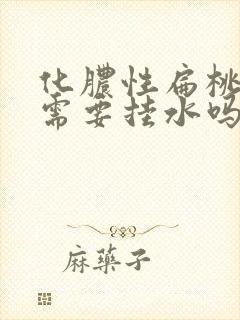 化膿性扁桃
需要挂水吗
麻藥子